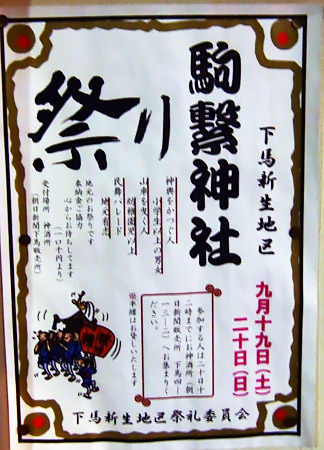 下馬新生地区
駒繋神社
祭り
九月十九日(土)
二十日(日)
神輿をかつぐ人
小学生以上の男女
山車を曳く人
幼稚園児以上
民舞パレード
地元有志
地元のお祭りです
心からお待ちしてます
奉納金ご協力
(一〇千円より)
受付場所 神酒所
(朝日新聞下馬販売所)
参加する人は二十日十
二時までにお神酒所(朝
日新聞販売所 下馬四ー
一三ー二)へお集まりく
ださい。
※半纏はお貸しいたします
下馬新生地区祭礼委員会